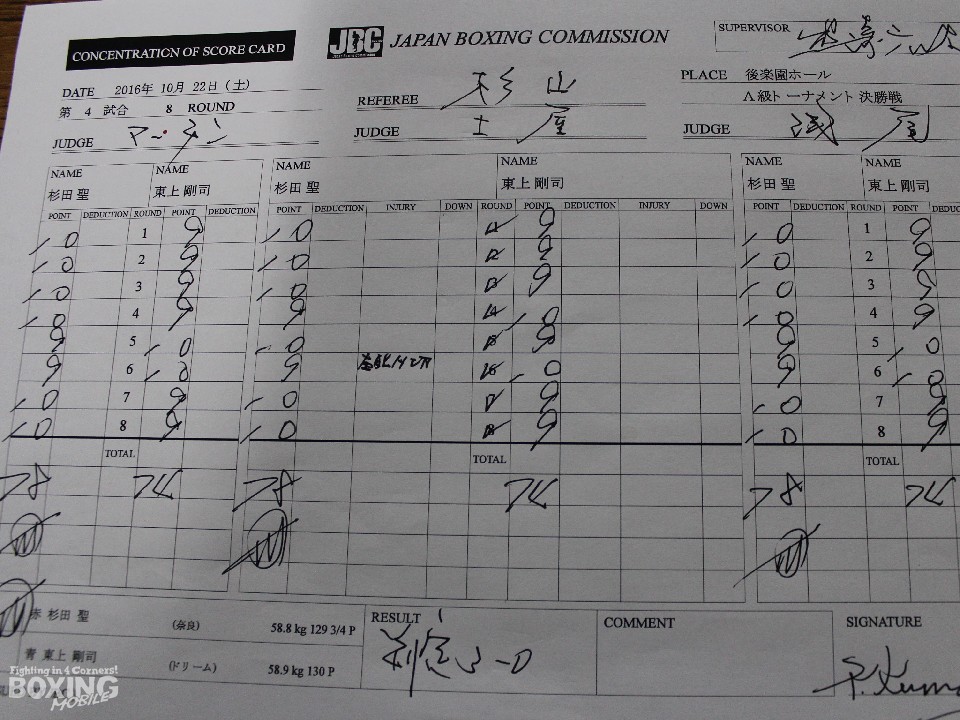 CONCENTRATION OF SCORE CARD
JBC JAPAN BOXING COMMISSION
SUPERVISOR
DATE 2016年 10月 22日 (土)
第 4 試合 8 ROUND
REFEREE 杉山
PLACE 後楽園ホール
A級トーナメント 決勝戦
JUDGE マーチン
JUDGE 土屋
JUDGE
NAME NAME NAME NAME NAME NAME
杉田 聖 東上 剛司 杉田 聖 東上 剛司 杉田 聖 東上 剛司
POINT DEDUCTION ROUND POINT DEDUCTION POINT DEDUCTION INJURY DOWN ROUND POINT DEDUCTION INJURY DOWN POINT DEDUCTION ROUND POINT DEDUC
10 1 9 10 1 9 10 1 9
10 2 9 10 2 9 10 2 9
10 3 9 10 3 9 10 3 9
10 4 9 9 4 10 10 4 9
9 5 10 10 5 9 9 5 10
9 6 10 9 6 10 9 6 10
10 7 9 10 7 9 10 7 9
10 8 9 10 8 9 10 8 9
TOTAL TOTAL TOTAL
78 74 78 74 78 74
赤 杉田 聖 (奈良) 58.8 kg 129 3/4 P
青 東上 剛司 (ドリーム) 58.9 kg 130 P
RESULT
判定 3-0
COMMENT
SIGNATURE
Fighting in 4 Corners!
BOXING
MOBILE